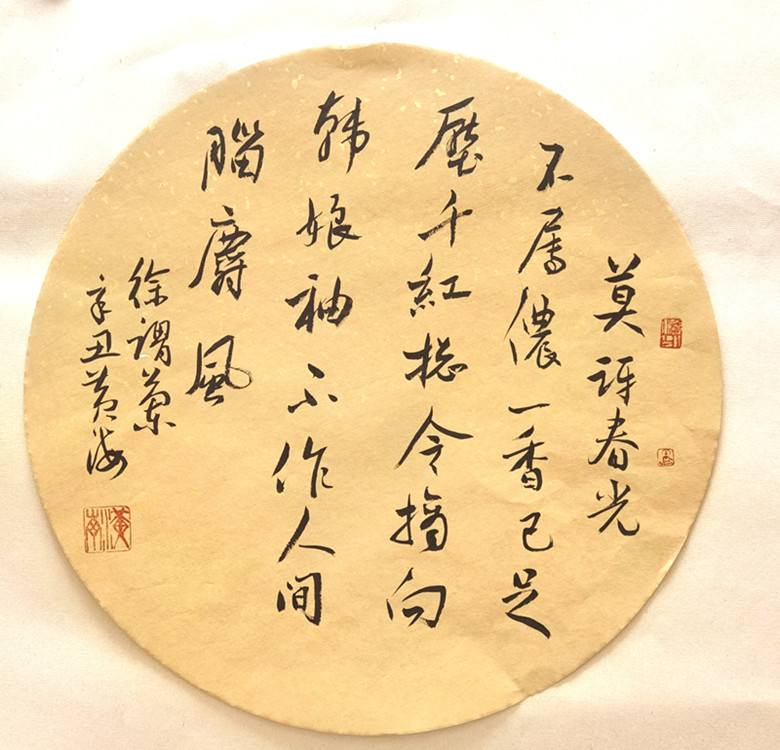 莫訝春光
不屬儂一香已足
壓千紅捴令摘向
韩娘袖不作人间
腦麝風
徐渭蘭
辛丑黄海